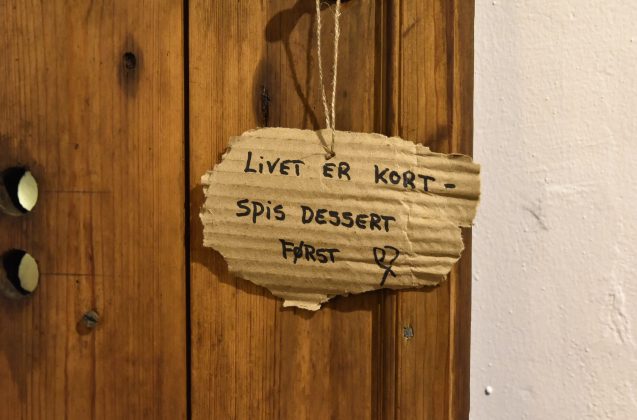 LiVET ER KORT -
SPIS DESSERT
FØRST